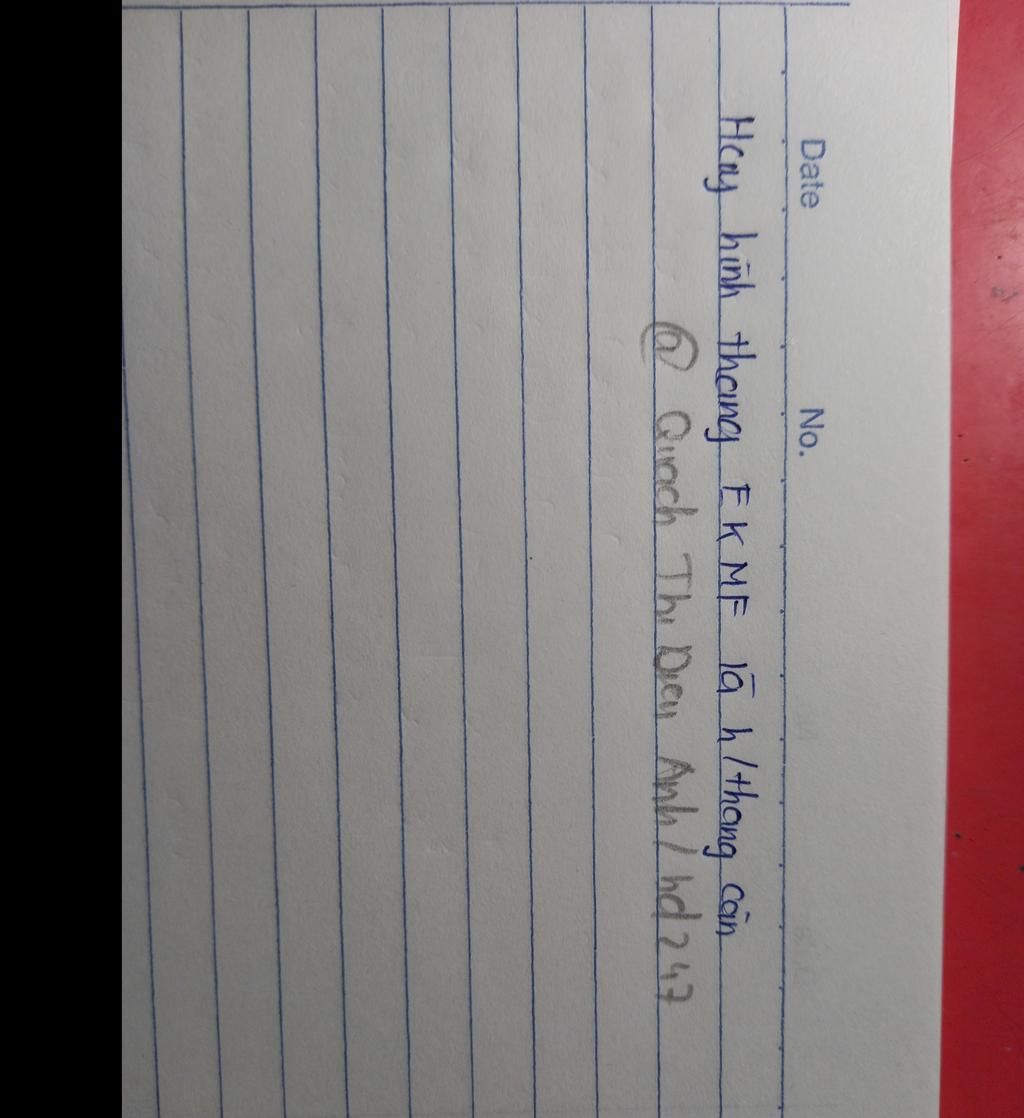 Date No.
Hay hình thang FKMF là h/thang cân
@ Quach Thi Dieu Anh / hd247